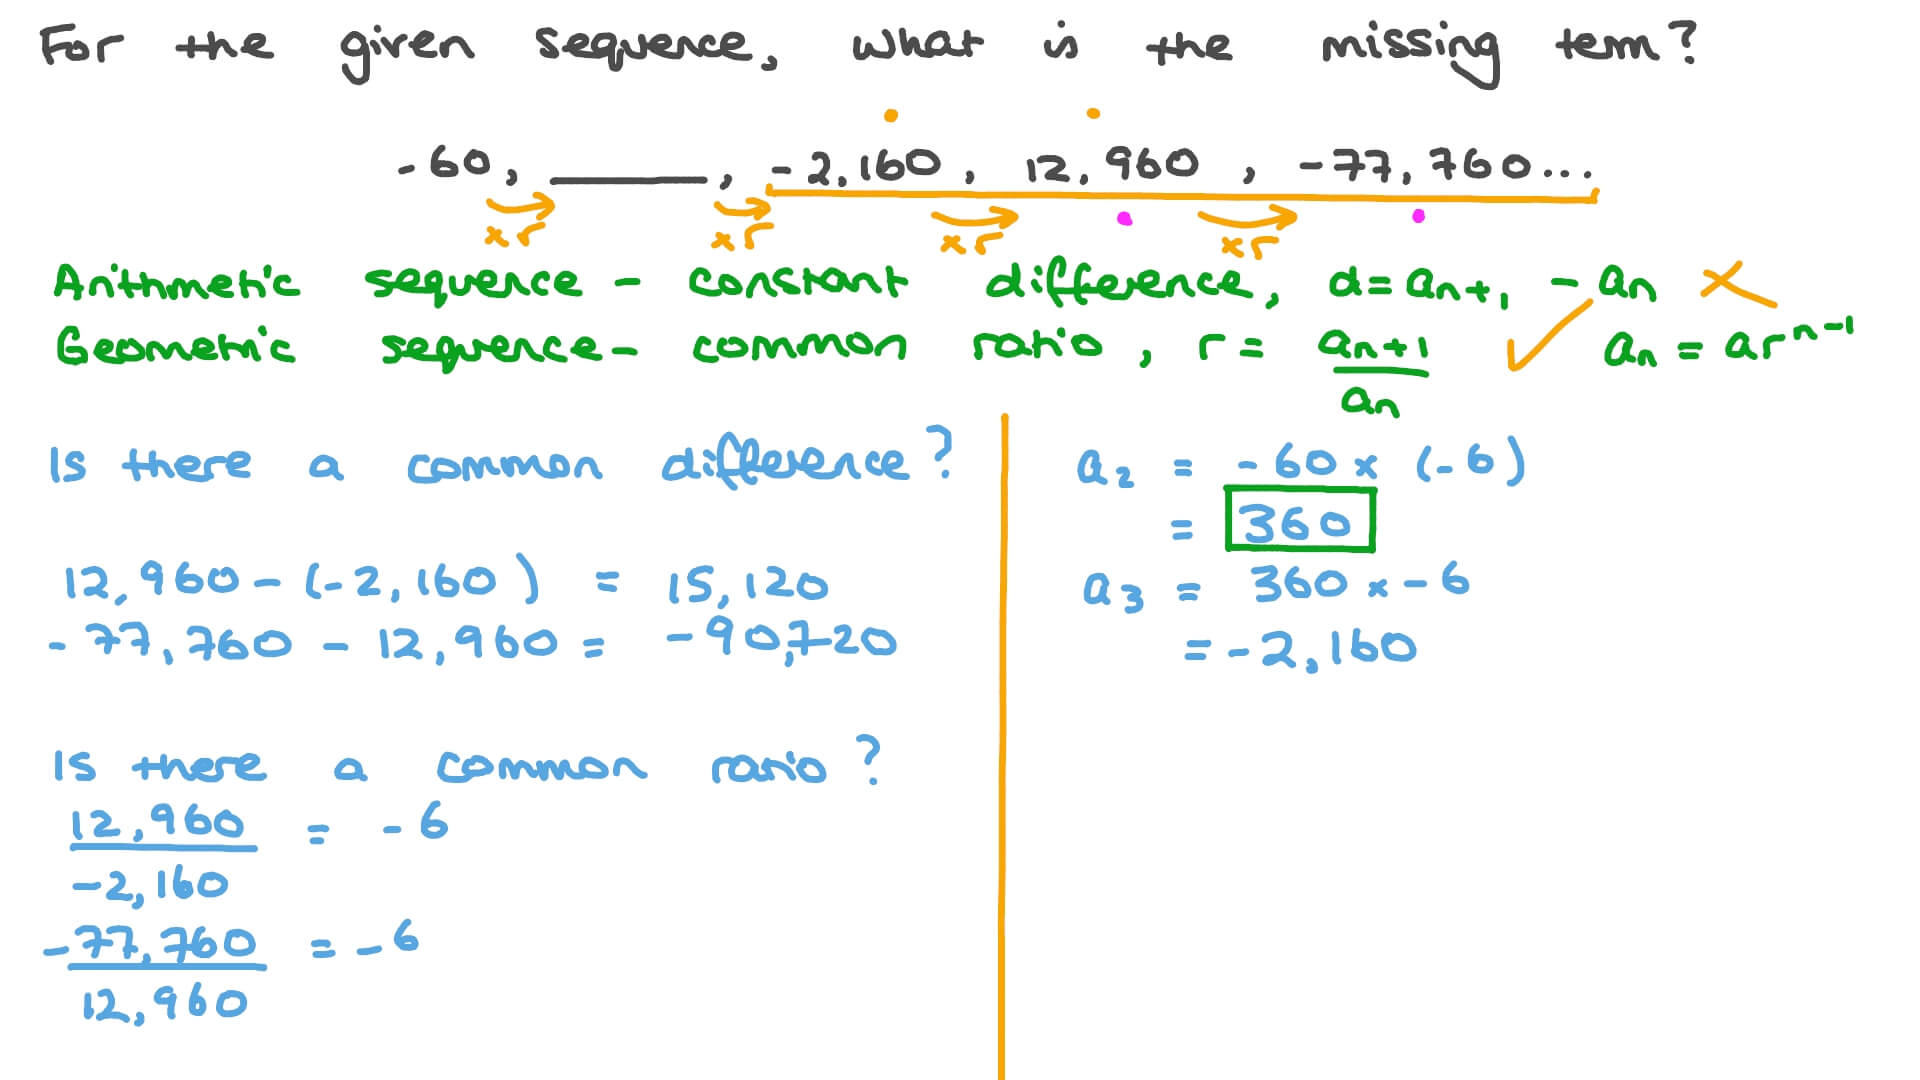 For the given sequence, what is the missing term?
-60, ______, -2,160, 12,960, -77,760...
×r ×r ×r ×r
Arithmetic sequence - constant difference, d = aₙ₊₁ - aₙ
Geometric sequence - common ratio, r = aₙ₊₁/aₙ aₙ = arⁿ⁻¹
Is there a common difference?
12,960 - (-2,160) = 15,120
-77,760 - 12,960 = -90,720
Is there a common ratio?
12,960 = -6
-2,160
-77,760 = -6
12,960
a₂ = -60 × (-6)
= 360
a₃ = 360 × -6
= -2,160